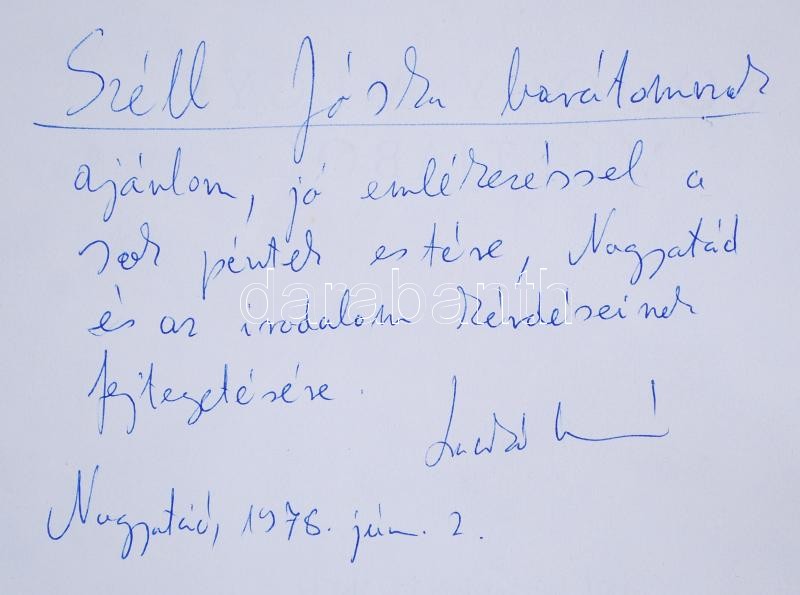 Széll Jóska barátomnak
ajánlom, jó emlékezéssel a
sok péntek estére, Nagyatád
és az irodalom kérdéseinek
fejtegetésére.
Nagyatád, 1978. jún. 2.
darabanth